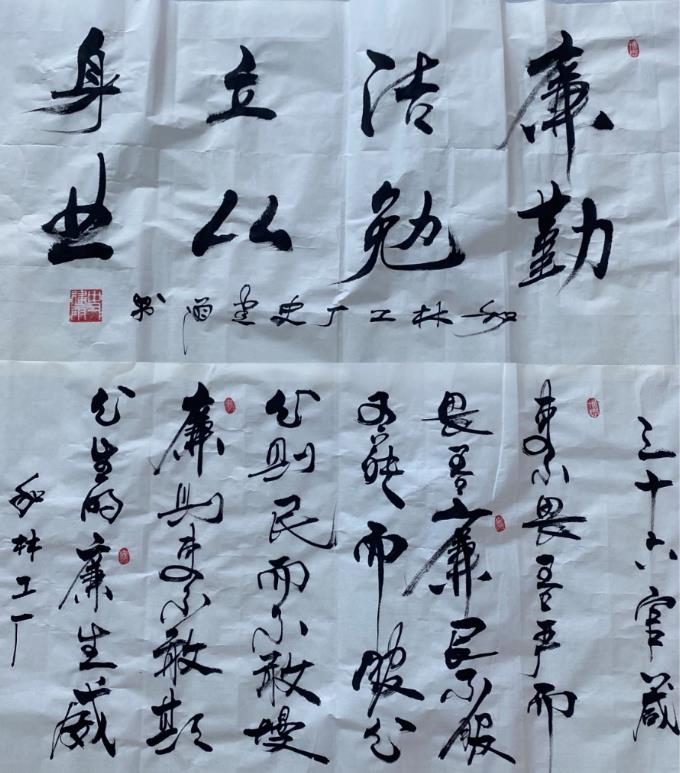 廉洁立身
勤勉从业
和林工厂史建
书
三十六官箴
吏不畏吾严而
畏吾廉民不服
吾能而服公
公则民而不敢慢
廉则吏不敢欺
公生明廉生威
和林工厂